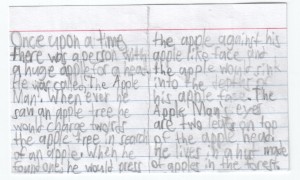 Once upon a time
there was a person with
a huge apple for a head
He was called, The Apple
Man. When ever he
saw an apple tree he
would charge twords
the apple tree in search
of an apple. When he
found one he would press
the apple against his
apple like face and
the apple would sink
into the of
his apple face. The
Apple Man's eyes
are two leafs on top
of the apple head.
He lives in a hut made
of apples in the forest.